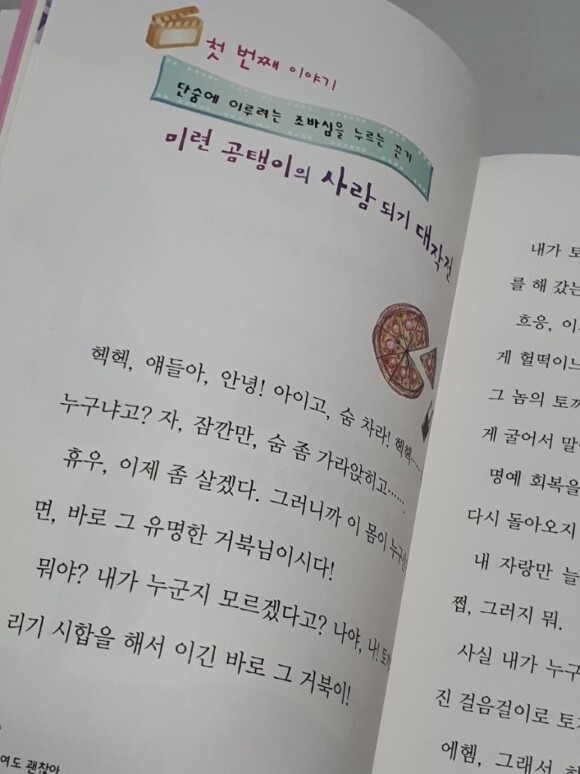 첫 번째 이야기
단숨에 이루려는 조바심을 누르는 끈기
미련 곰탱이의 사람 되기 대작전
헥헥, 얘들아, 안녕! 아이고, 숨 차라! 헥헥……
누구냐고? 자, 잠깐만, 숨 좀 가라앉히고……
휴우, 이제 좀 살겠다. 그러니까 이 몸이
면, 바로 그 유명한 거북님이시다!
뭐야? 내가 누군지 모르겠다고? 나야, 나!
리기 시합을 해서 이긴 바로 그 거북이!
여도 괜찮아
내가
를 해 갔는
흐응,
게 헐떡이느
그 놈의 토끼
게 굴어서
명예 회복을
다시 돌아오지
내 자랑만
쩝, 그러지 뭐.
사실 내가 누구
진 걸음걸이로
에헴, 그래서